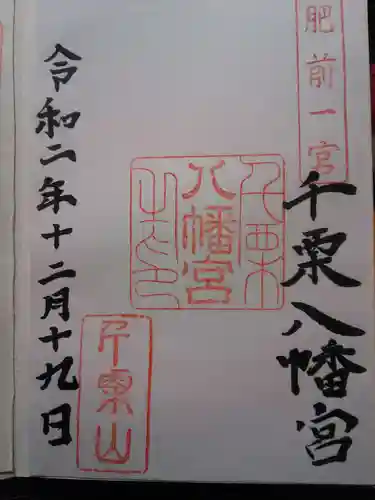 肥前一宮
千栗八幡宮
千栗
八幡宮
千栗山
令和二年十二月十九日